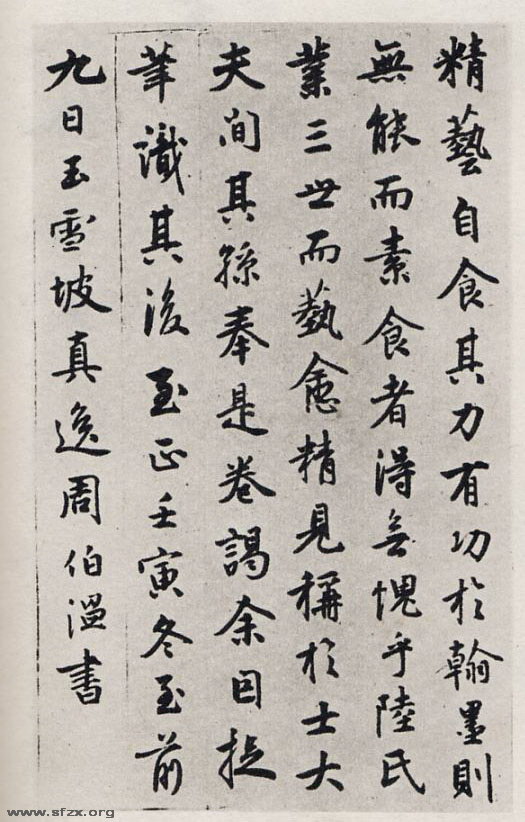 精藝自食其力有功於翰墨則
無能而素食者得無愧乎陸氏
業三世而藝愈精見稱於士大
夫間其孫奉是卷謁余因捉
筆識其後至正壬寅冬至前
九日玉雪坡真逸周伯溫書
www.sfzx.org